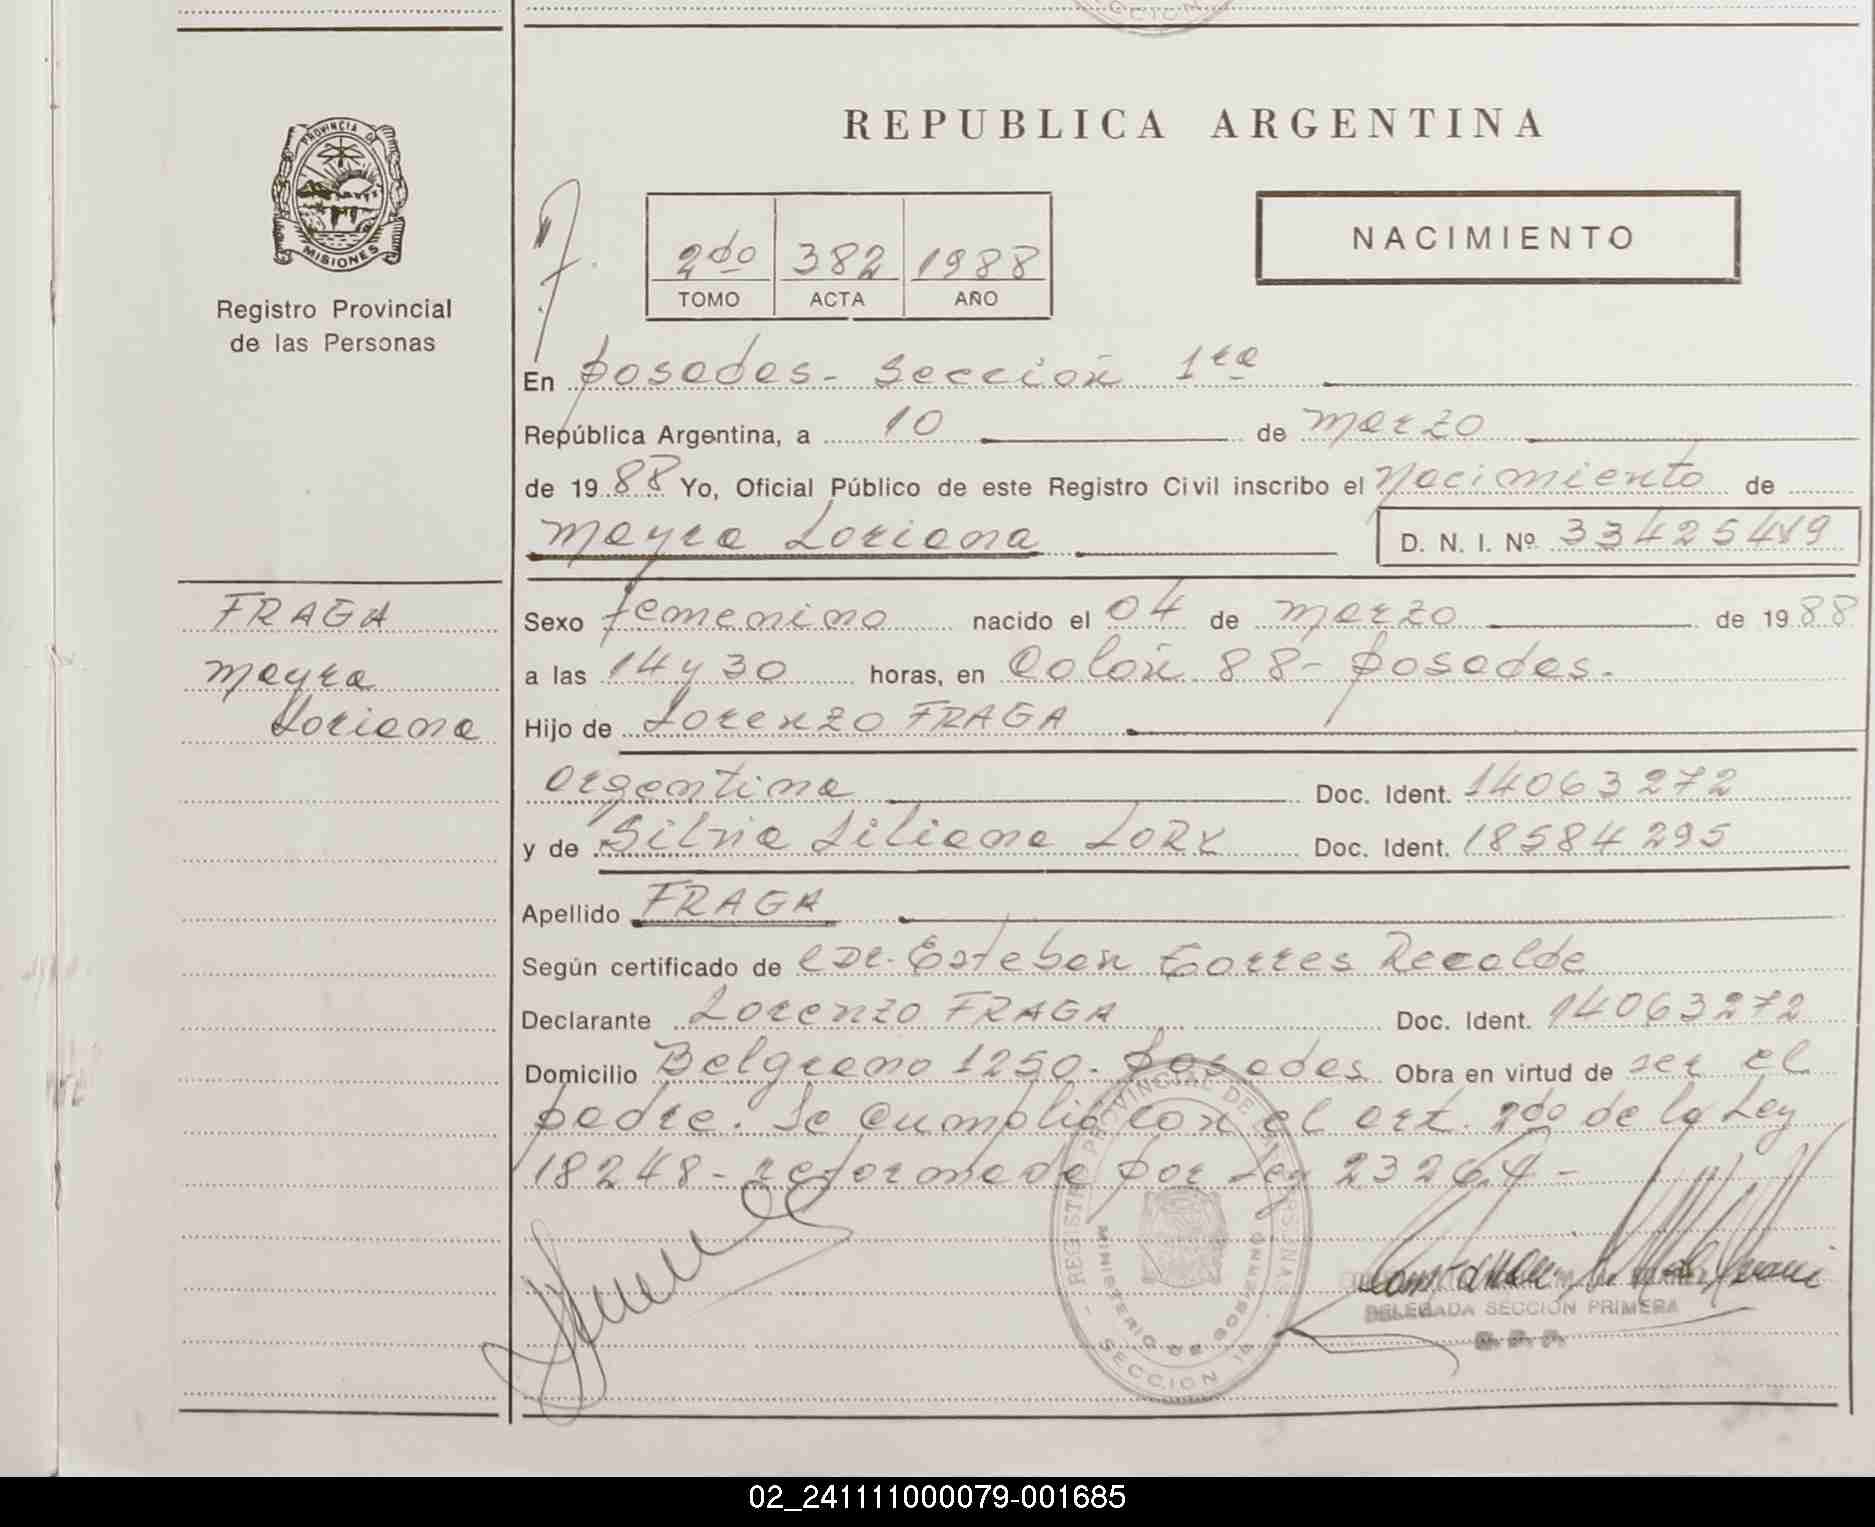 REPUBLICA ARGENTINA
PROVINCIA DE
MISIONES
Registro Provincial
de las Personas
2do 382 1988
TOMO ACTA AÑO
NACIMIENTO
En Posadas - Sección 1ra
República Argentina, a 10 de Marzo
de 1988 Yo, Oficial Público de este Registro Civil inscribo el Nacimiento de
Mayra Loriana
D. N. I. Nº
FRAGA
Mayra
Loriana
Sexo femenino nacido el 04 de Marzo de 1988
a las 14 y 30 horas, en Colón 88 - Posadas.
Hijo de Lorenzo FRAGA
argentina Doc. Ident. 14063272
y de Silvia Liliana Doc. Ident. 18584295
Apellido FRAGA
Según certificado de Esteban Torres Recalde
Declarante Lorenzo FRAGA Doc. Ident. 14063272
Domicilio Belgrano 1250. Posadas Obra en virtud de ser el
padre. Se cumplió con el art. 2do de la Ley
18248 - reformada por Ley 23264 -
REGISTRO PROVINCIAL DE LAS PERSONAS
MINISTERIO DE GOBIERNO
SECCION 1a
DELEGADA SECCION PRIMERA
02_241111000079-001685